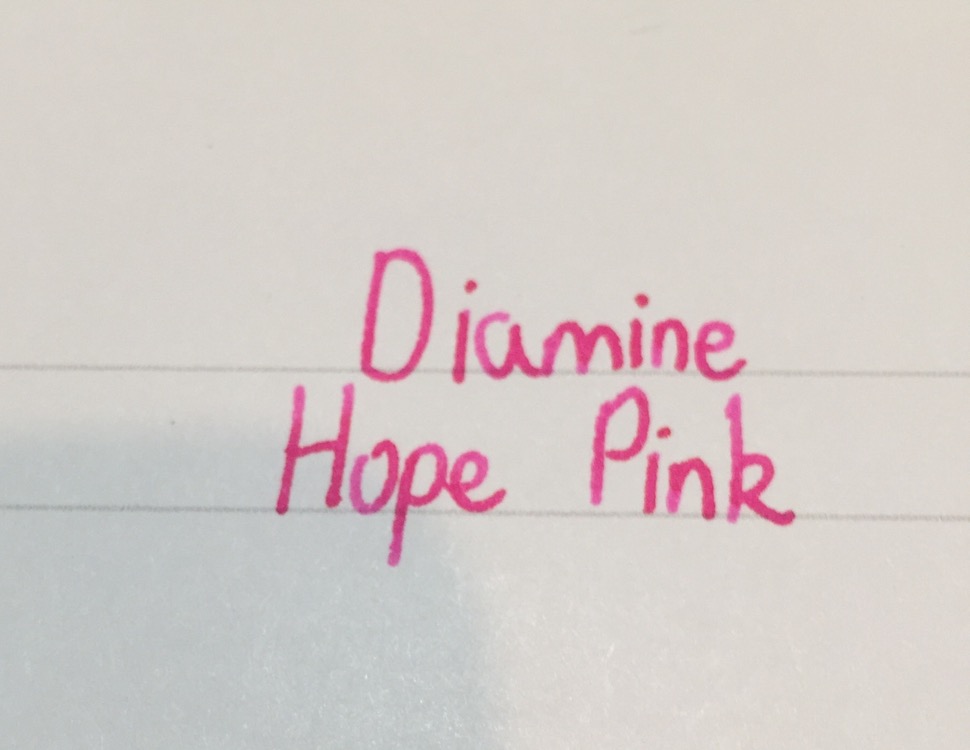 Diamine
Hope Pink